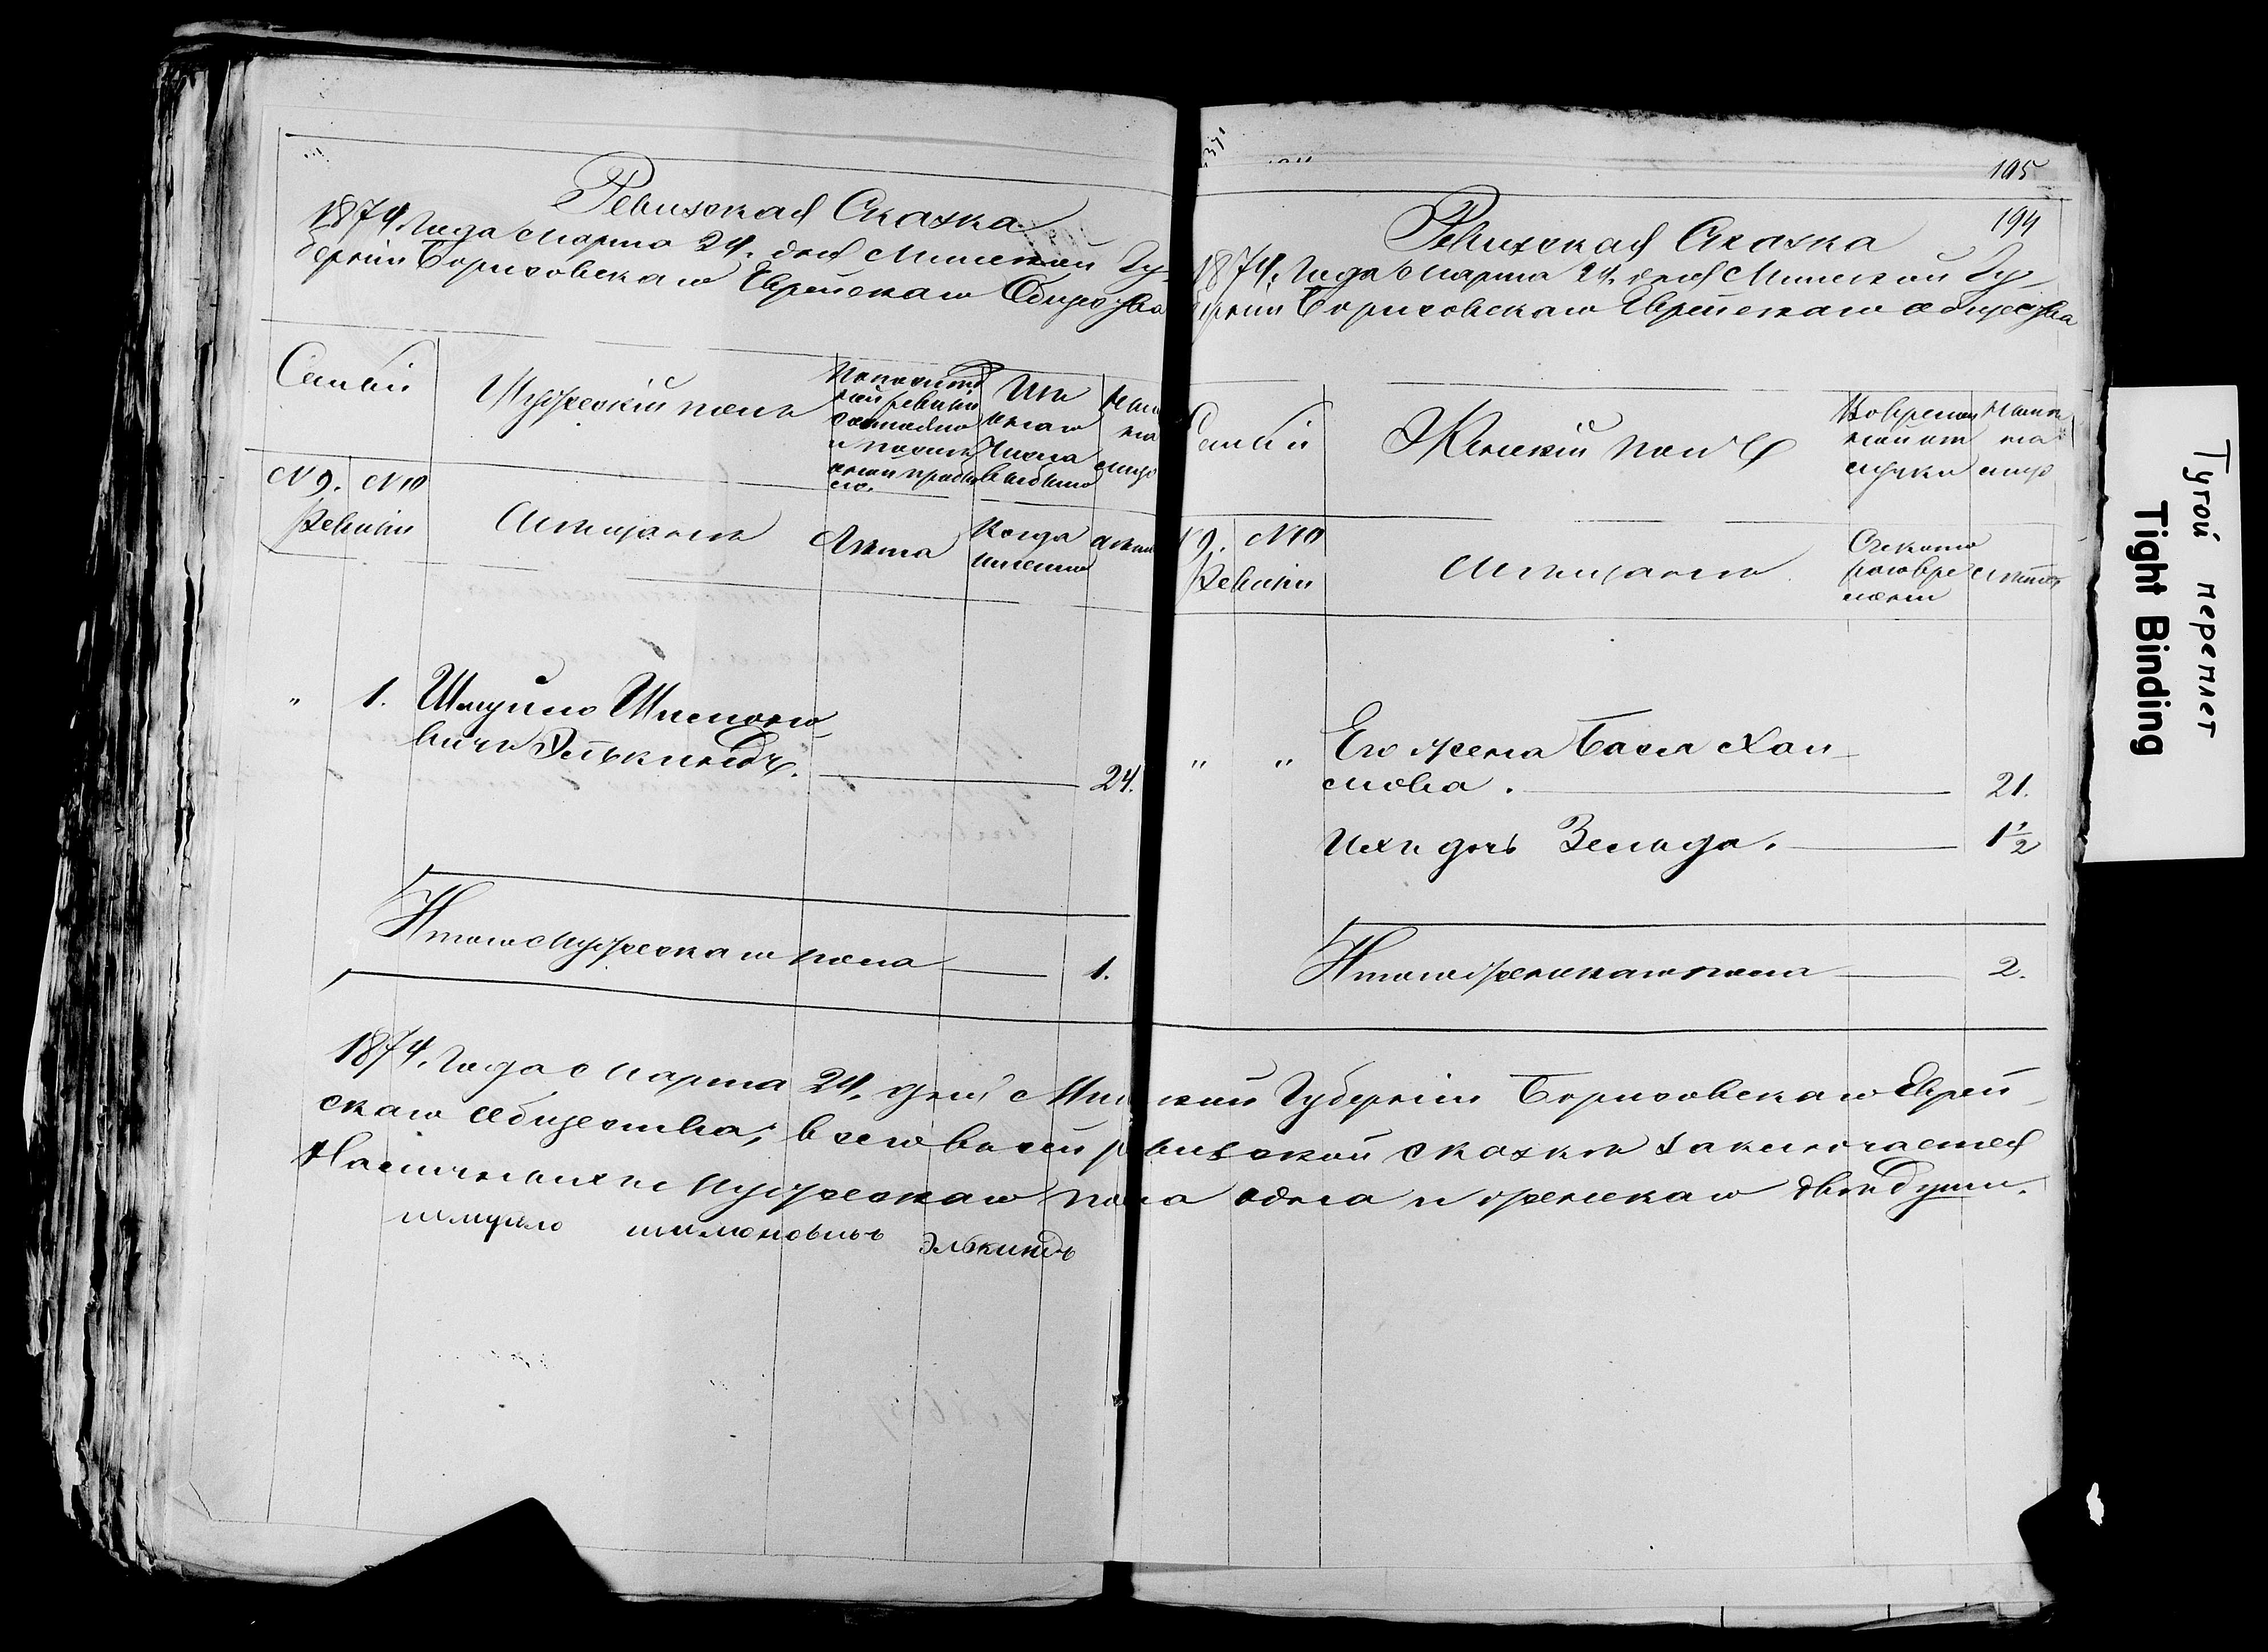 Ревизская Сказка
1874. Года Марта 24. дня Минской Гу-
берніи Борисовскаго Еврейскаго Общества
Семьи
Мужескій полъ
Изъ
онаго
числа
выбыло
№ 9. № 10
Ревизіи
Мѣщанъ
Лѣта
Когда
именно
" 1. Шмуйло Шимоно-
вичъ Элькиндъ. 24.
Итого мужескаго пола 1.
195
194
Ревизская Сказка
1874. Года Марта 24. дня Минской Гу-
берніи Борисовскаго Еврейскаго общества
Семьи
Женскій полъ
9. № 10
Ревизіи
Мѣщанъ
" " Его жена Бася Хаи-
мова. 21.
Ихъ дочь Зелда. 1 1/2
Итого женскаго пола 2.
1874. Года Марта 24. дня Минской Губерніи Борисовскаго Еврей-
скаго общества, всего въ сей ревизской сказкѣ заключается
Наличныхъ мужескаго пола одна и женскаго двѣ души.
шмуйло шимоновичъ элькиндъ
Тугой переплет
Tight Binding